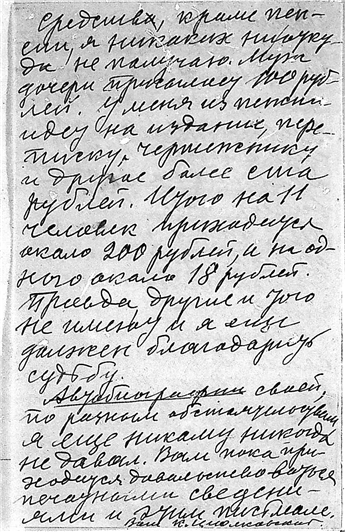 средства, кроме пен-
сии, я никаких ниотку-
да не получаю. Муж
дочери присылает 100 руб-
лей. У меня из пенсии
идет на издание, пере-
писку, чертежнику
и другое более ста
рублей. Итого на 11
человек приходится
около 200 рублей, а на од-
ного около 18 рублей.
Правда другие и того
не имеют и я еще
должен благодарить
судьбу.
Автобиографии своей,
по разным обстоятельствам
я еще никому никогда
не давал. Вам пока при-
ходится довольствоваться
печатными сведени-
ями и этим письмом.
Ваш К. Циолковский